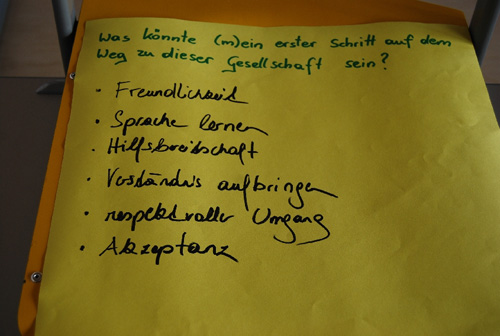 Was könnte (m)ein erster Schritt auf dem
Weg zu dieser Gesellschaft sein?
• Freundlichkeit
• Sprache lernen
• Hilfsbereitschaft
• Verständnis aufbringen
• respektvoller Umgang
• Akzeptanz